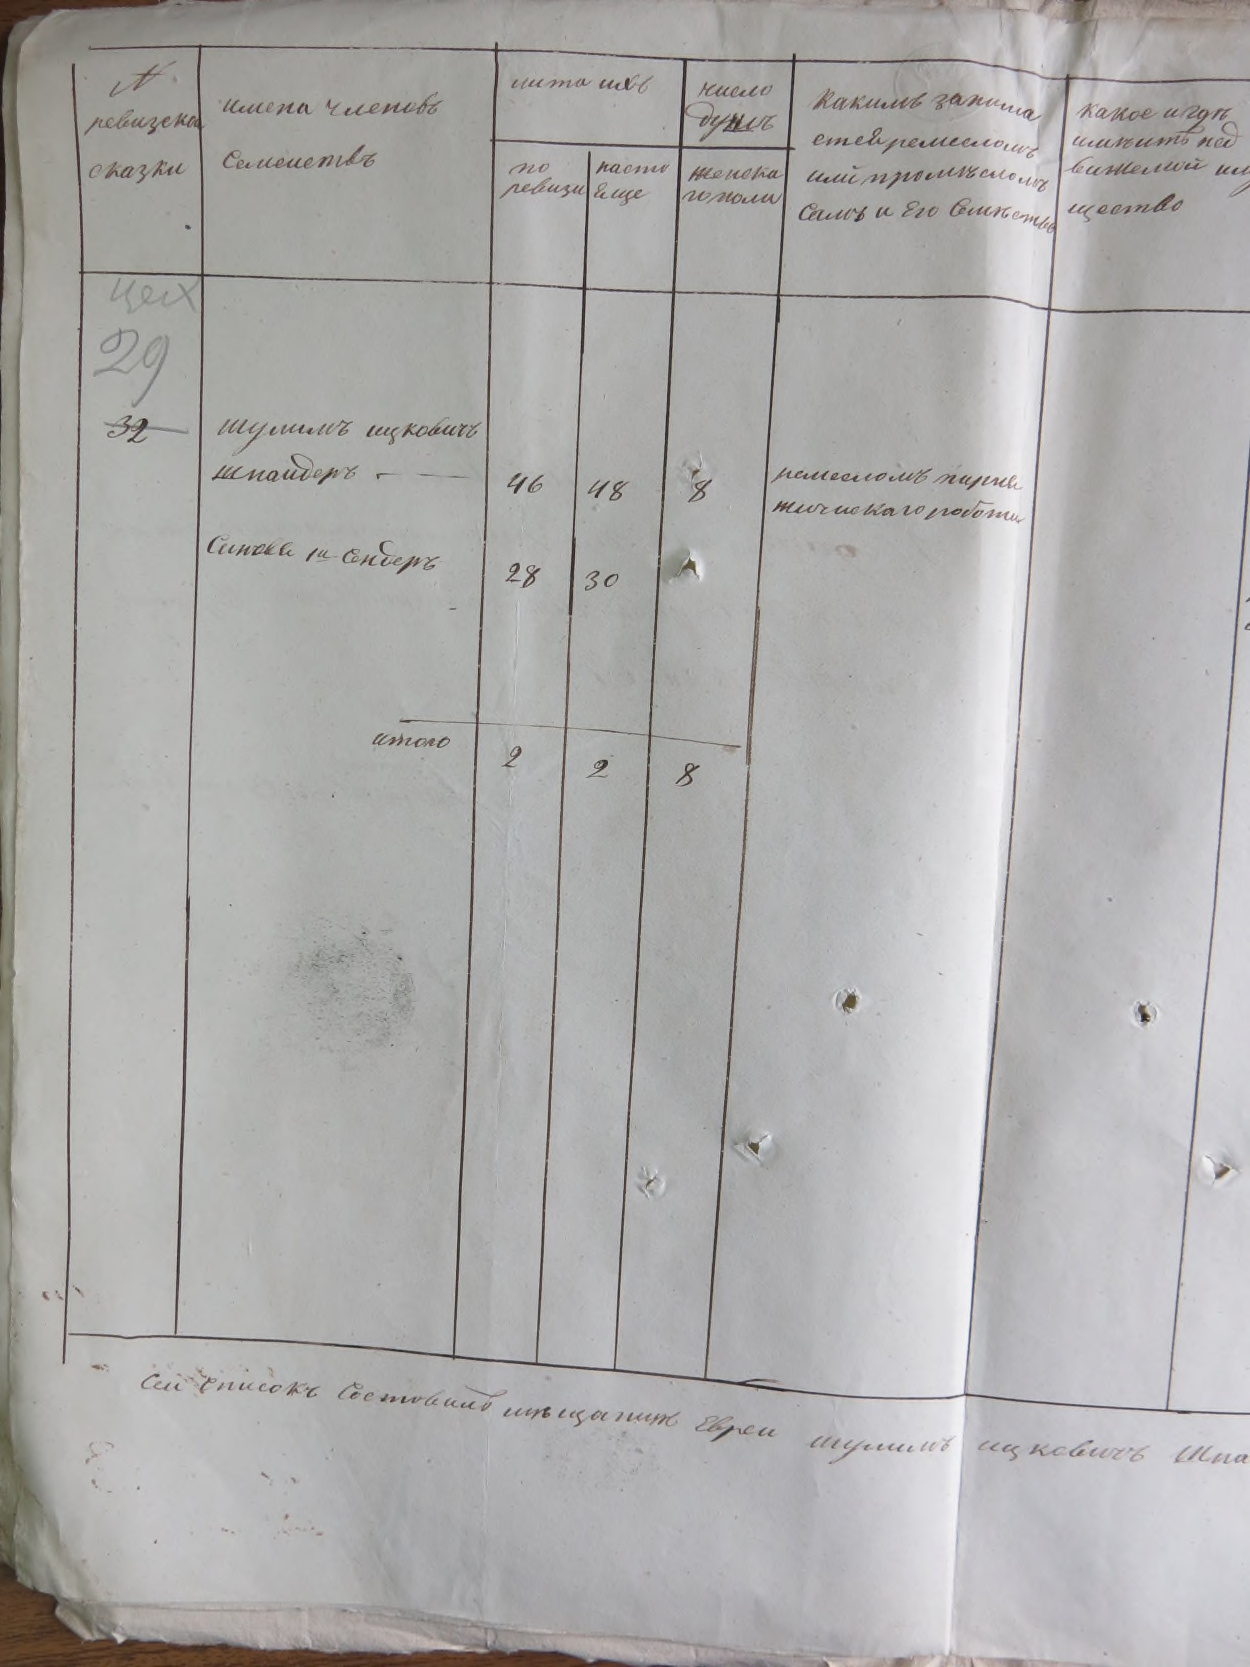 N
ревизской
сказки
имена членовъ
Семействъ
лита ихъ
по
ревизи
насто
Еще
число
душъ
женска
го поли
какимъ занима
ется ремесломъ
или промысломъ
Самъ и Его Семѣство
какое и гдѣ
имѣитъ нед
вижемой иму
щество
цех
29
32
шулимъ ицковичъ
шпайдеръ
46 48 8
ремесломъ
жническаго работы
Синовя 1й Сендеръ
28 30
итого
2 2 8
Сей Список Составилъ мѣщанинъ Еврей шулимъ ицковичъ Шпа